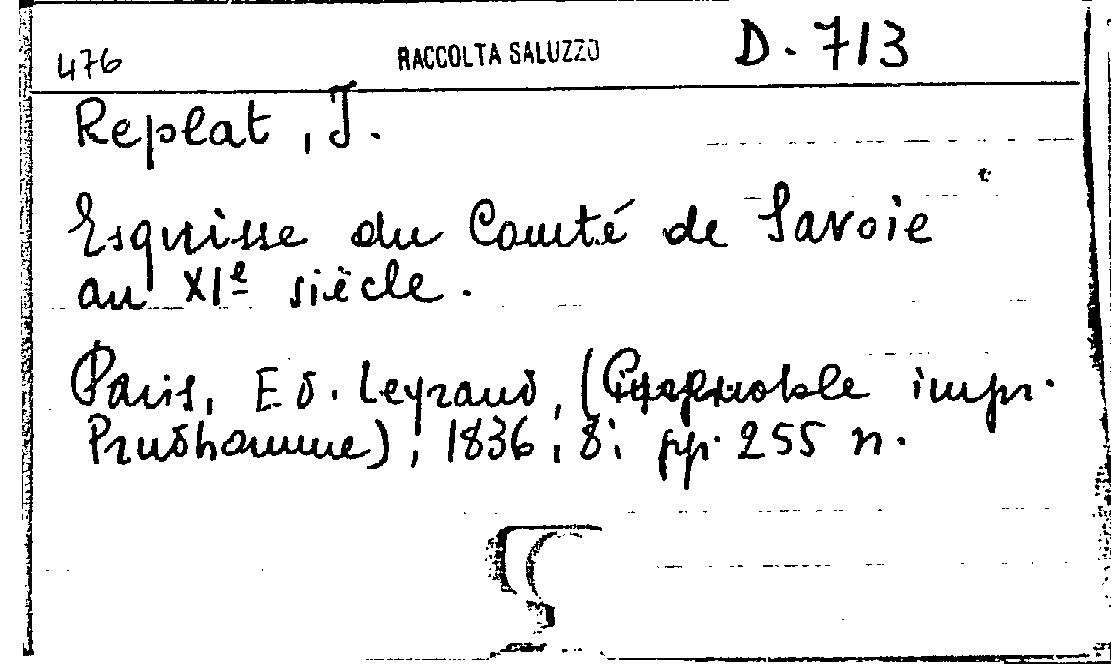 476 RACCOLTA SALUZZO D. 713
Replat, J.
Esquisse du Comté de Savoie
au XIe siècle.
Paris, Ed. Legrand, (Grenoble impr.
Prudhomme), 1836, 8; pp. 255 n.